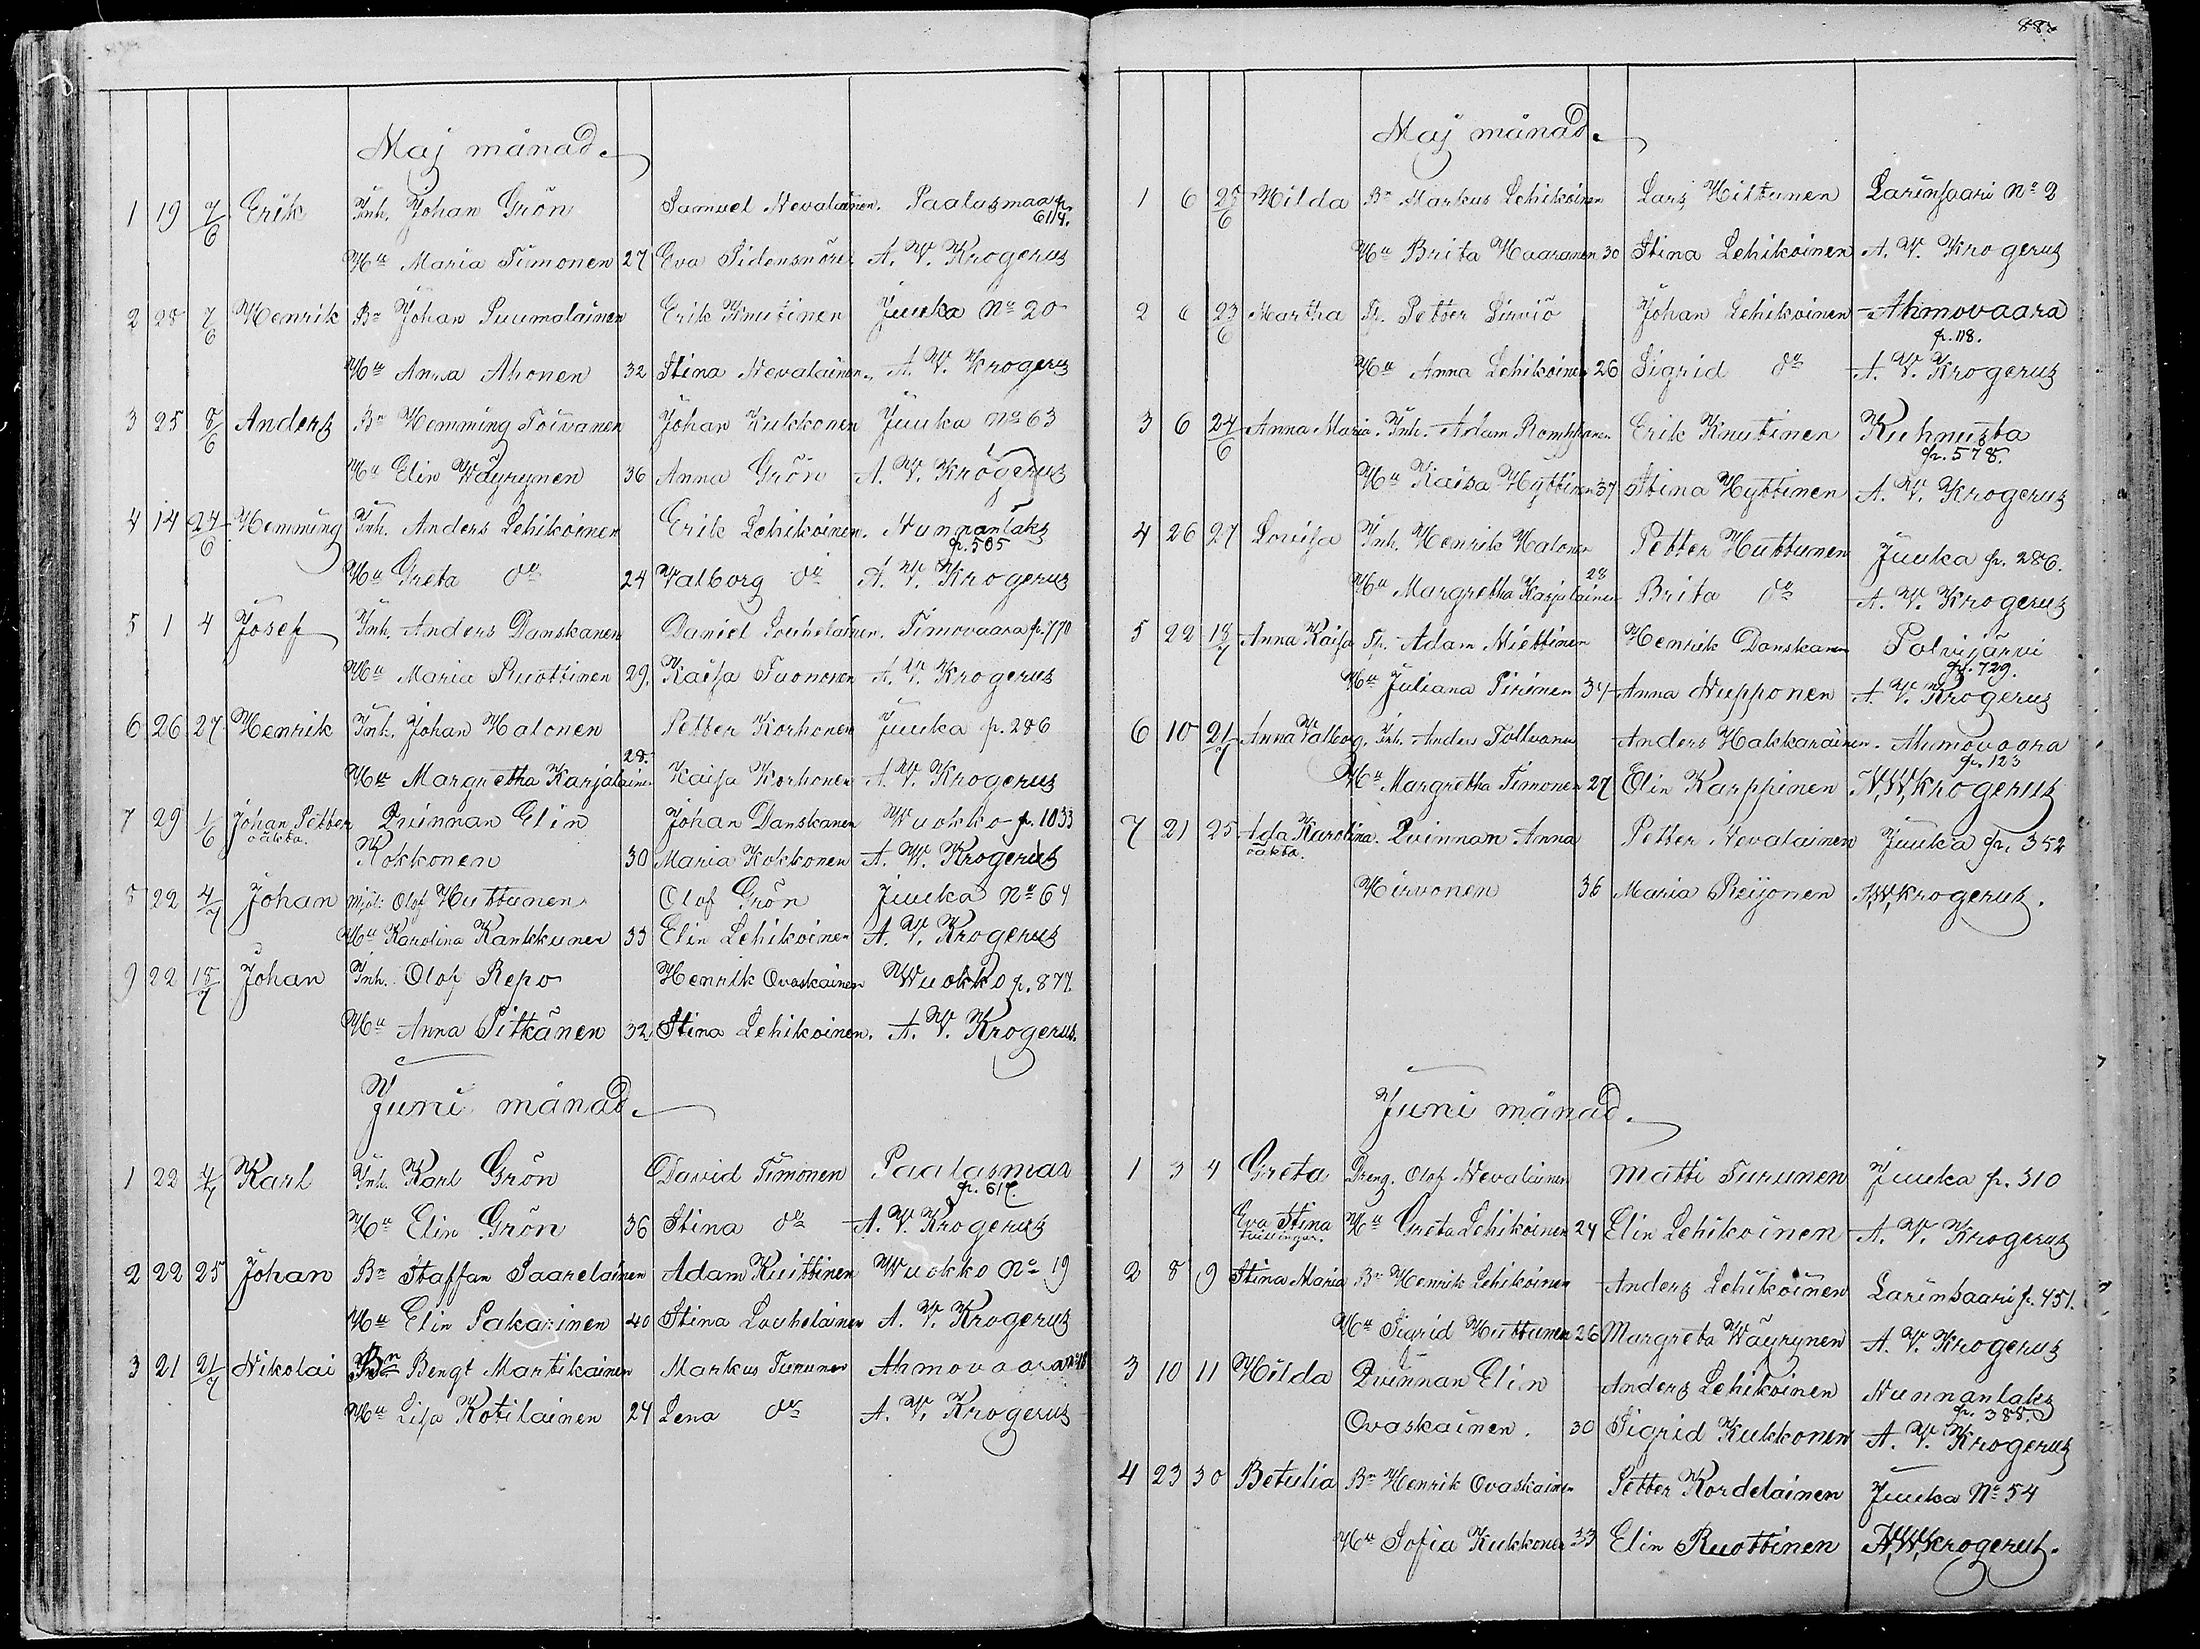 Maj månad.
1 19 7/6 Erik Inh. Johan Grön Samuel Nevalainen. Paalasmaa p. 614.
Hu Maria Timonen 27 Eva Sidensnöre A. W. Krogerus
2 28 7/6 Henrik Bn Johan Puumalainen Erik Knutinen Juuka No 20
Hu Anna Ahonen 32 Stina Nevalainen. A. W. Krogerus
3 25 8/6 Anders Bn Hemming Toivanen Johan Kukkonen Juuka No 63
Hu Elin Wäyrynen 36 Anna Grön A. W. Krogerus
4 14 24/6 Hemming Inh. Anders Lehikoinen Erik Lehikoinen. Nunnanlaks p. 505
Hu Greta do 24 Valborg do A. W. Krogerus
5 1 4 Josef Inh. Anders Danskanen Daniel Louhelainen. Timovaara p. 770
Hu Maria Ruottinen 29. Kaisa Tuononen A. W. Krogerus
6 26 27 Henrik Inh. Johan Halonen Petter Korhonen Juuka p. 286
Hu Margretha Karjalainen 28. Kaisa Korhonen A. W. Krogerus
7 29 1/6 Johan Petter Qvinnan Elin Johan Danskanen Wuokko p. 1033
oäkta. Kokkonen 30 Maria Kokkonen A. W. Krogerus
8 22 4/7 Johan Mjöl: Olof Huttunen Olof Grön Juuka No 64
Hu Karolina Kankkunen 33 Elin Lehikoinen A. W. Krogerus
9 22 18/7 Johan Inh. Olof Repo Henrik Ovaskainen Wuokko p. 877.
Hu Anna Pitkänen 32 Stina Lehikoinen. A. W. Krogerus.
Juni månad.
1 22 4/7 Karl Inh. Karl Grön David Timonen Paalasmaa p. 617.
Hu Elin Grön 36 Stina do A. W. Krogerus
2 22 25 Johan Bn Staffan Saarelainen Adam Kuittinen Wuokko No 19
Hu Elin Pakarinen 40 Stina Louhelainen A. W. Krogerus
3 21 21/7 Nikolai Bn Bengt Martikainen Markus Turunen Ahmovaara
Hu Lisa Kotilainen 24 Lena do A. W. Krogerus
Maj månad.
1 6 28/6 Hilda Bn Markus Lehikoinen Lars Hiltunen Larinsaari No 2
Hu Brita Haaranen 30 Stina Lehikoinen A. W. Krogerus
2 6 23/6 Martha Tp. Petter Sirviö Johan Lehikoinen Ahmovaara p. 118.
Hu Anna Lehikoinen 26 Sigrid do A. W. Krogerus
3 6 24/6 Anna Maria. Inh. Adam Romppanen Erik Knutinen Kuhnusta p. 578.
Hu Kaisa Hyttinen 37 Stina Hyttinen A. W. Krogerus
4 26 27 Lovisa Inh. Henrik Halonen Petter Huttunen Juuka p. 286.
Hu Margretha Karjalainen 28 Brita do A. W. Krogerus
5 22 18/7 Anna Kaisa Tp. Adam Miettinen Henrik Danskanen Polvijärvi p. 729.
Hu Juliana Pirinen 34 Anna Nupponen A. W. Krogerus
6 10 21/7 Anna Valborg. Inh. Anders Tolvanen Anders Hakkarainen. Ahmovaara p. 123
Hu Margretha Timonen 27 Elin Karppinen A. W. Krogerus
7 21 25 Ada Karolina. Qvinnan Anna Petter Nevalainen Juuka p. 352
oäkta.
Hirvonen 36 Maria Reijonen A. W. Krogerus.
Juni månad.
1 3 4 Greta Dreng. Olof Nevalainen Matti Turunen Juuka p. 310
Eva Stina Hu Greta Lehikoinen 24 Elin Lehikoinen A. W. Krogerus
tvillingar.
2 8 9 Stina Maria Bn Henrik Lehikoinen Anders Lehikoinen Larinsaari p. 451.
Hu Sigrid Huttunen 26 Margreta Wäyrynen A. W. Krogerus
3 10 11 Hilda Qvinnan Elin Anders Lehikoinen Nunnanlaks p. 388.
Ovaskainen. 30 Sigrid Kukkonen A. W. Krogerus
4 23 30 Betulia Bn Henrik Ovaskainen Petter Kordelainen Juuka No 54
Hu Sofia Kukkonen 33 Elin Ruottinen A. W. Krogerus.